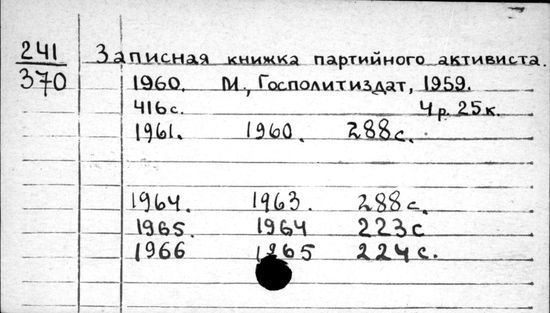 241 Записная книжка партийного активиста.
370 1960. М., Госполитиздат, 1959.
416 с. 4 р. 25 к.
1961. 1960. 288 с.
1964. 1963. 288 с.
1965. 1964 223 с
1966 1965 224 с.